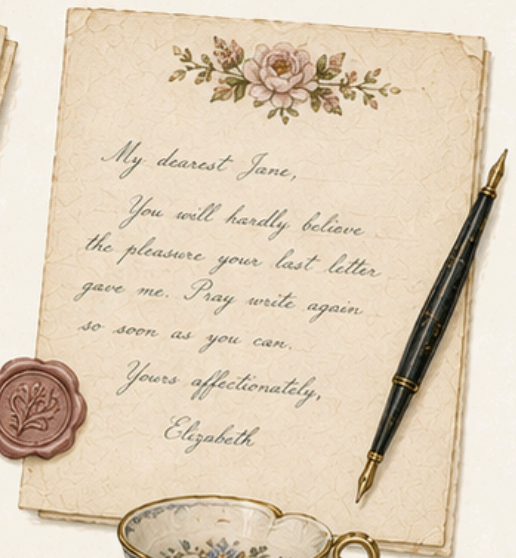 My dearest Jane,
You will hardly believe
the pleasure your last letter
gave me. Pray write again
so soon as you can.
Yours affectionately,
Elizabeth